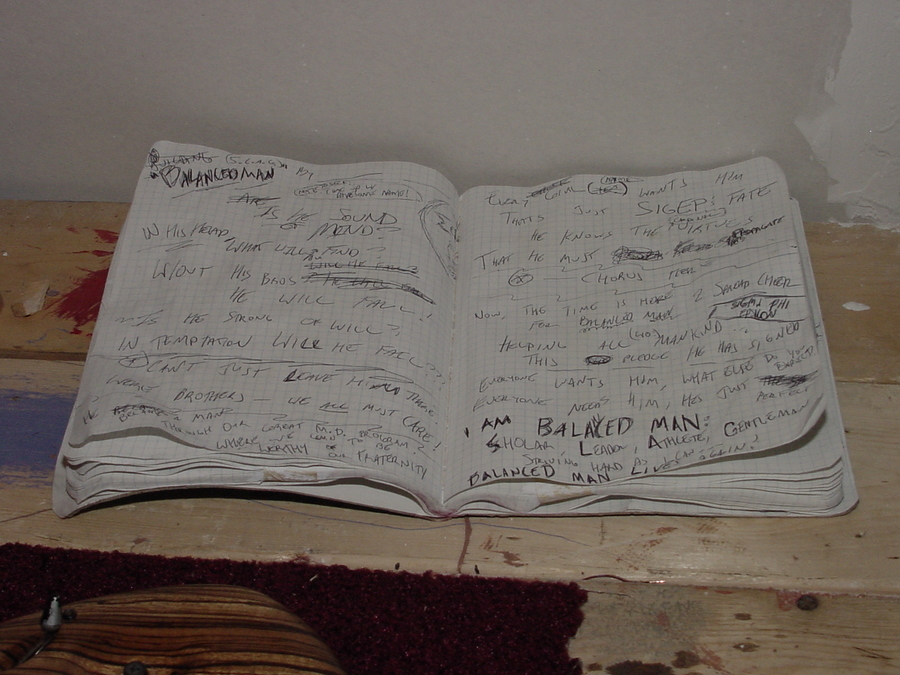 BALANCED MAN By
IS HE SOUND
OF MIND?
IN HIS HEAD,
WHAT WILL FIND?
W/OUT HIS BROS
HE WILL FALL!
IS HE STRONG OF WILL?
IN TEMPTATION WILL HE FALL???
CAN'T JUST LEAVE HIM THERE
WE'RE BROTHERS - WE ALL MUST CARE!
A MAN
THROUGH OUR GREAT M.D. PROGRAM?
WHERE WE LEARN TO BE
WORTHY OF OUR FRATERNITY
EVERY WANTS HIM
THATS JUST SIGEP! FATE
HE KNOWS THE VIRTUES
THAT HE MUST
CHORUS
NOW, THE TIME IS HERE 2 SPREAD CHEER
FOR BALANCED MAN SIGMA PHI
EPSILON
HELPING ALL MANKIND
THIS PLEDGE HE HAS SIGNED
EVERYONE WANTS HIM, WHAT ELSE DO YOU EXPECT?
EVERYONE NEEDS HIM, HE'S JUST PERFECT
I AM BALACED MAN:
SCHOLAR, LEADER, ATHLETE, GENTLEMAN
STRIVING HARD AS I CAN
BALANCED MAN LIVES AGAIN!